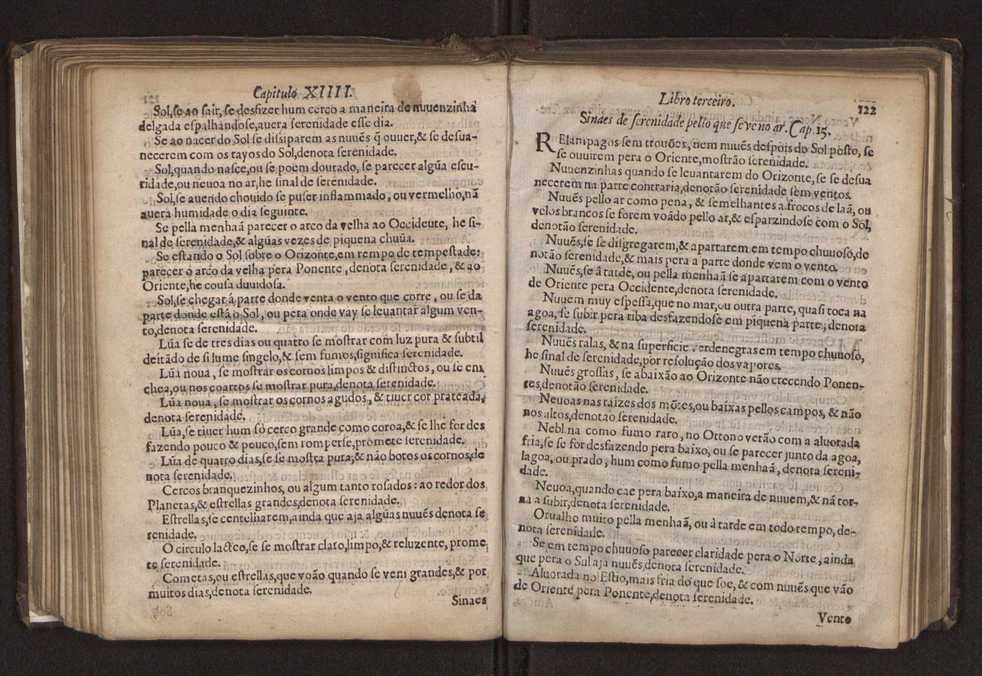 Capitulo XIIII.
Sol,se ao sair, se desfizer hum cerco a maneira de nuuenzinha
delgada espalhandose,auera serenidade esse dia.
Se ao nacer do Sol se dissiparem as nuuẽs q̃ ouuer,& se desua-
necerem com os rayos do Sol,denota serenidade.
Sol,quando nasce,ou se poem dourado, se parecer algũa escu-
ridade,ou neuoa no ar,he sinal de serenidade.
Sol,se auendo chouido se puser inflammado, ou vermelho,nã
auera humidade o dia seguinte.
Se pella menhaã parecer o arco da velha ao Occidente, he si-
nal de serenidade,& algũas vezes de piquena chuũa.
Se estando o Sol sobre o Orizonte,em tempo de tempestade:
parecer o arco da velha pera Ponente, denota serenidade, & ao
Oriente,he cousa duuidosa.
Sol,se chegar á parte donde venta o vento que corre, ou se da
parte donde está o Sol, ou pera onde vay se leuantar algum ven-
to,denota serenidade.
Lũa se de tres dias ou quatro se mostrar com luz pura & subtil
deitãdo de si lume singelo,& sem fumos,significa serenidade.
Lũa noua, se mostrar os cornos limpos & distinctos, ou se en
chea,ou nos coartos se mostrar pura,denota serenidade.
Lũa noua, se mostrar os cornos agudos, & tiuer cor prateada,
denota serenidade.
Lũa,se tiuer hum só cerco grande como coroa,& se lhe for des
fazendo pouco & pouco,sem romperse,promete serenidade.
Lũa de quatro dias,se se mostra pura,& não botos os cornos,de
nota serenidade.
Cercos branquezinhos, ou algum tanto rosados: ao redor dos
Planetas,& estrellas grandes,denota serenidade.
Estrellas,se centelharem,ainda que aja algũas nuuẽs denota se
renidade.
O circulo lacteo,se se mostrar claro,limpo,& reluzente, prome
te serenidade.
Cometas,ou estrellas,que voão quando se vem grandes,& por
muitos dias,denota serenidade.
Sinaes
Libro terceiro.
122
Sinaes de serenidade pello que se ve no ar. Cap. 15.
RElampagos sem trouões, nem nuuẽs despois do Sol posto, se
se ouuirem pera o Oriente,mostrão serenidade.
Nuuenzinhas quando se leuantarem do Orizonte,se se desua
necerem na parte contraria,denotão serenidade sem ventos.
Nuuẽs pello ar como pena, & semelhantes a frocos de laã, ou
velos brancos se forem voãdo pello ar,& esparzindose com o Sol,
denotão serenidade.
Nuuẽs,se se disgregarem,& apartarem em tempo chuuoso,de
notão serenidade,& mais pera a parte donde vem o vento.
Nuuẽs,se á tarde, ou pella menhaã se apartarem com o vento
de Oriente pera Occidente,denota serenidade.
Nuuem muy espessa,que no mar,ou outra parte, quasi toca na
agoa, se subir pera riba desfazendose em piquena parte, denota
serenidade.
Nuuẽs ralas, & na superficie verdenegras em tempo chuuoso,
he sinal de serenidade,por resolução dos vapores.
Nuuẽs grossas, se abaixão ao Orizonte não crecendo Ponen-
tes,denotão serenidade.
Neuoas nas raizes dos mõtes,ou baixas pellos campos, & não
nos altos,denotão serenidade.
Neblina como fumo raro, no Ottono verão com a aluorada
fria,se se for desfazendo pera baixo, ou se parecer junto da agoa,
lagoa, ou prado, hum como fumo pella menhaã, denota sereni-
dade.
Neuoa,quando cae pera baixo,a maneira de nuuem,& nã tor-
na a subir,denota serenidade.
Orualho muito pella menhaã, ou à tarde em todo tempo, de-
nota serenidade.
Se em tempo chuuoso parecer claridade pera o Norte, ainda
que pera o Sul aja nuuẽs,denota serenidade.
Aluorada no Estio,mais fria do que soe, & com nuuẽs que vão
de Oriente pera Ponente,denota serenidade.
Vento